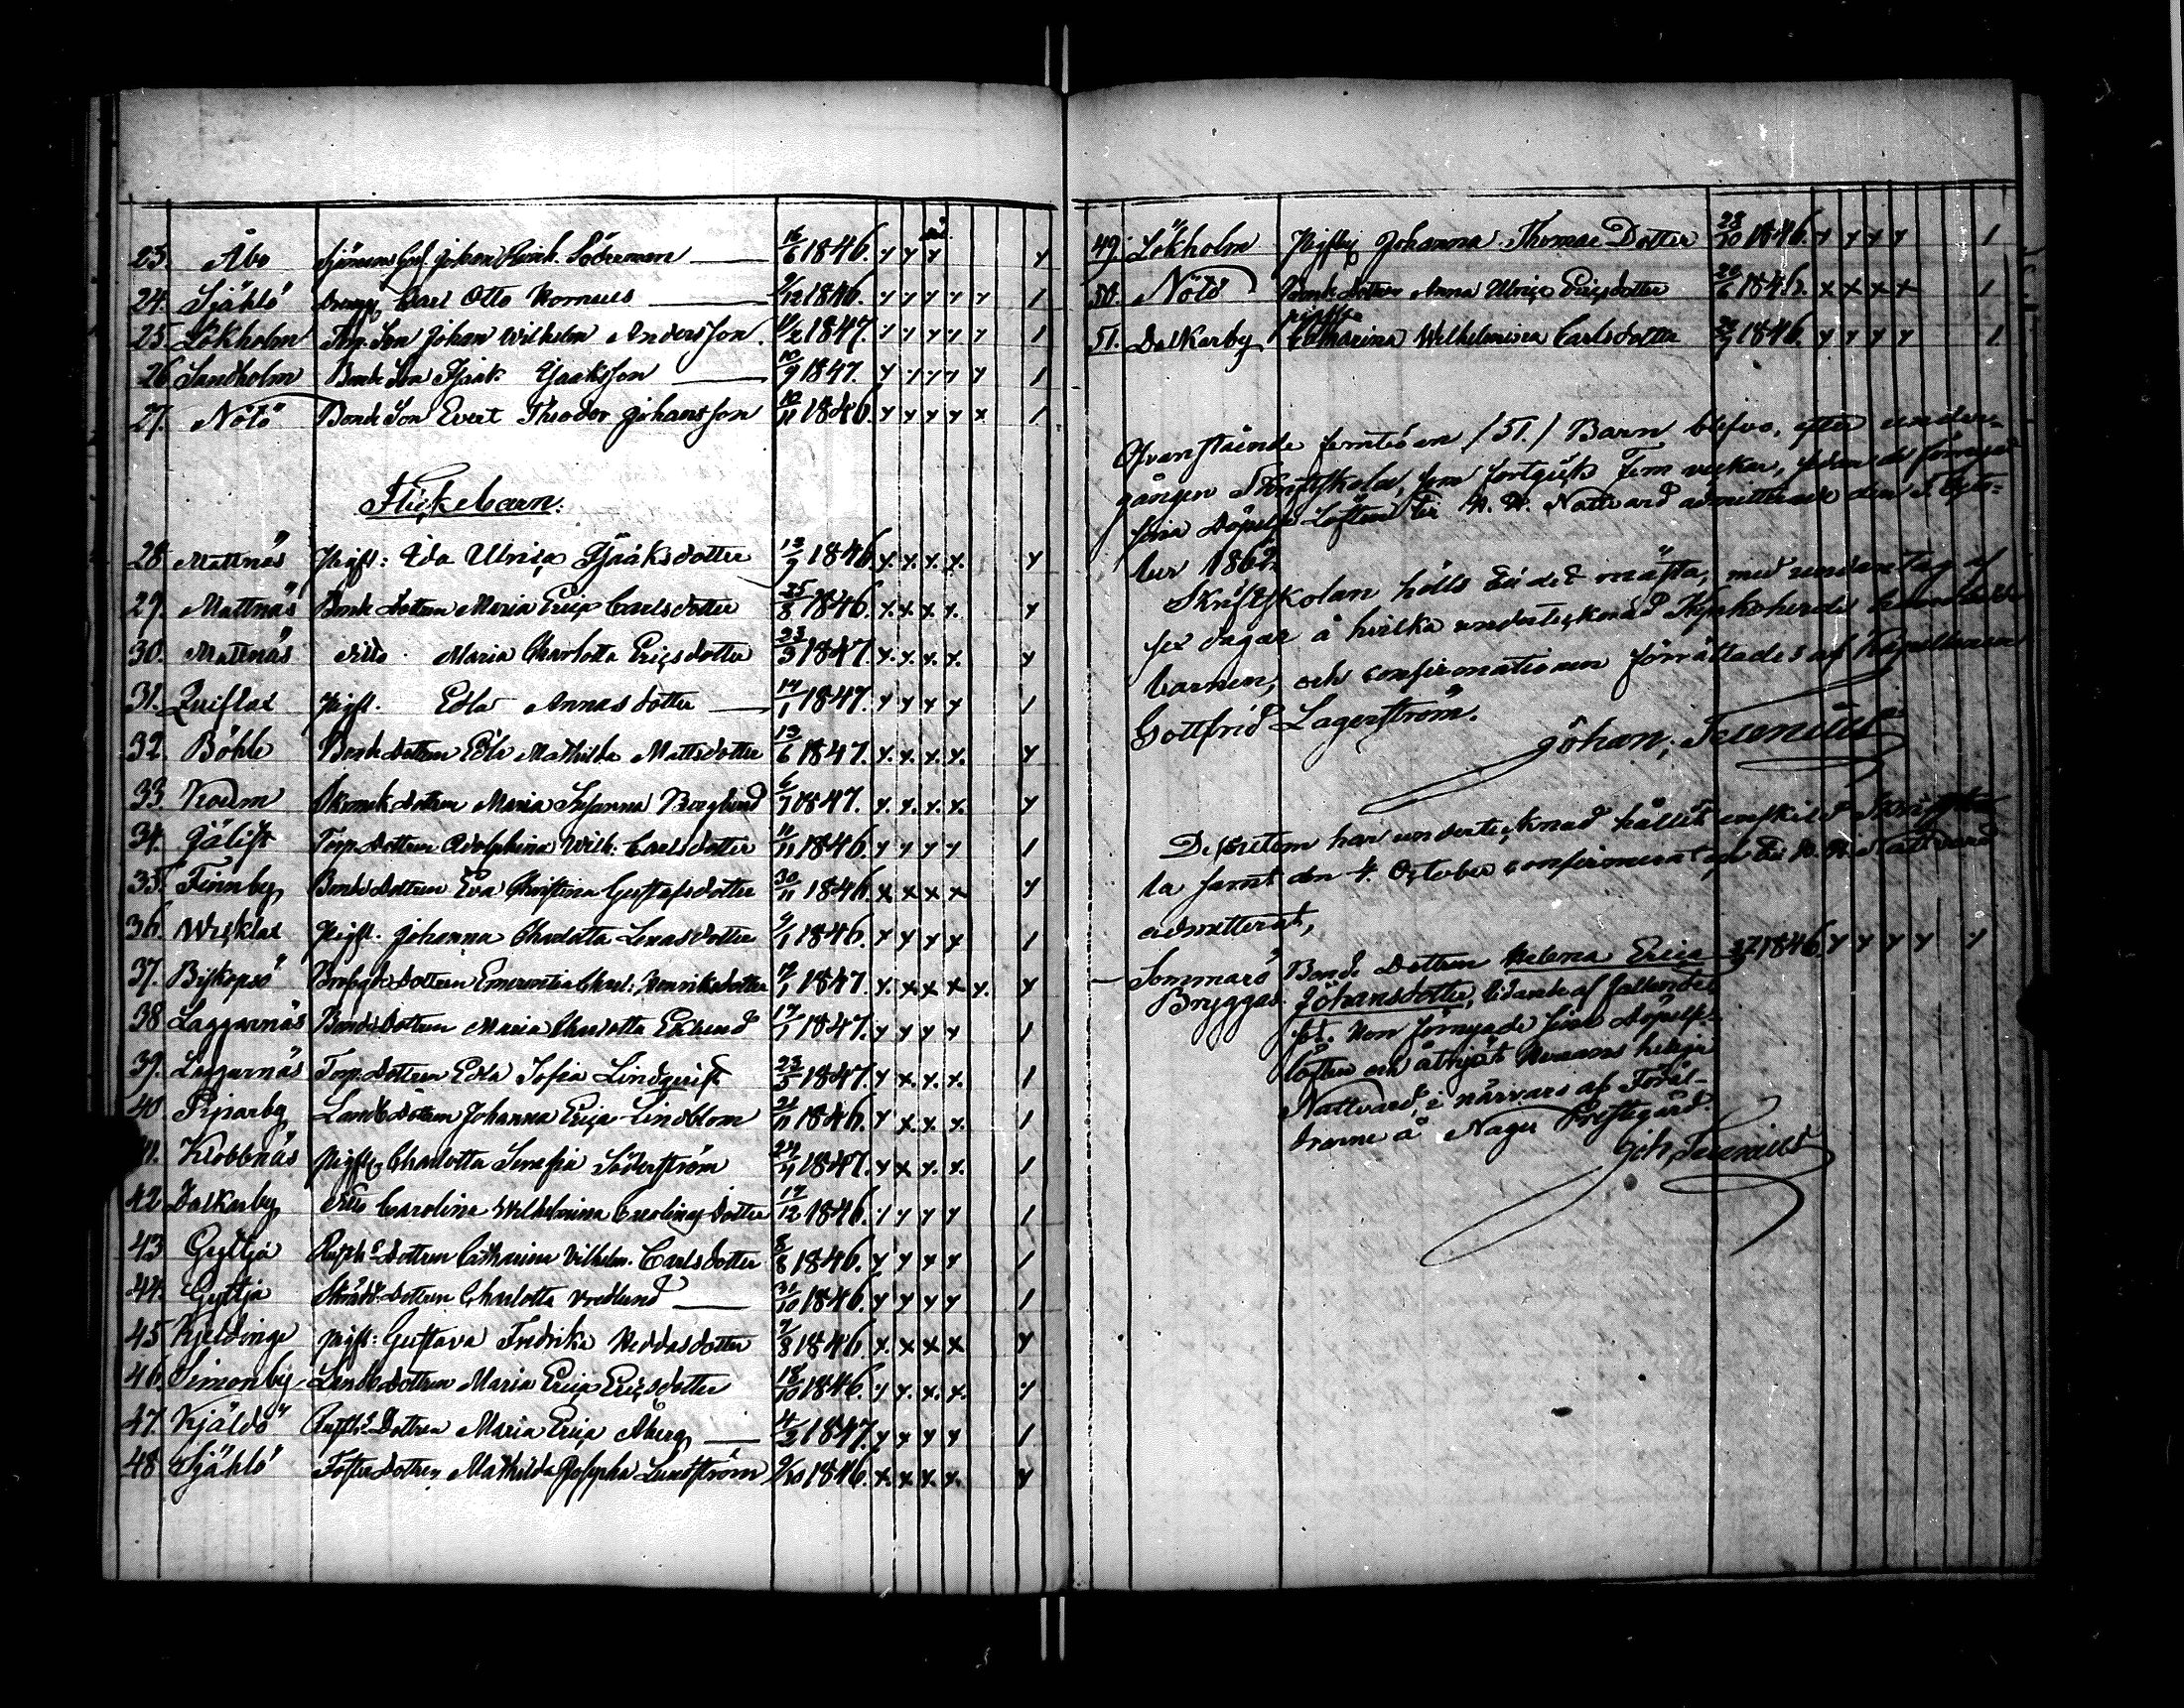 23. Åbo Sjömans Son Johan Henrik Söderman 16/6 1846. y y y y
24. Själö Dreng Carl Otto Kornell 9/12 1846. y y y y y 1
25. Lökholm Torp. Son Johan Wilhelm Andersson. 11/2 1847. y y y y y 1
26. Sandholm Bonde Son Isaak Isaksson 10/9 1847. y y y y y 1
27. Nötö Bonde Son Evert Theodor Johansson 10/11 1846. y y y y x 1
Flickebarn.
28. Mattnäs Pigfl: Ida Ulrica Isaaksdotter 13/7 1846. y. y. y. x. y
29. Mattnäs Bonde dottren Maria Erica Carlsdotter 25/8 1846. y. x. y. y. y
30. Mattnäs ditto Maria Charlotta Ericsdotter 23/3 1847. y. y. y. y. y
31. Pigfl. Edla Annasdotter 14/1 1847. y y y y 1
32. Böhle Bonde dottren Edla Mathilda Mattsdotter 13/6 1847. y. y. y. y. y
33. Maria Susanna Berglund 6/7 1847. y. y. y. y. y
34. Gälist Torp. Dottren Adolphina Wilh. Carlsdotter 11/11 1846. y y y y 1
35. Finnby Bonde Dottren Eva Christina Gustafsdotter 30/11 1846. x x x x y
36. Wicklax Pigfl. Johanna Charlotta Lenasdotter 9/1 1846. y y y y 1
37. Biskopsö dottren Henriksdotter 12/1 1847. y. x x x y. y
38 Laggarnäs Bonde Dottren Maria Charlotta Eklund 17/1 1847. y y y y 1
39. Laggarnäs Torp. Dottren Edla Sofia Lindqvist 23/5 1847. y x. y. x. 1
40 Landb. dottren Johanna Erica Lindblom 21/11 1846. y x. y. x. 1
41. Klobbnäs Pigfl. Charlotta Serafia Söderström 24/4 1847. y x y. x. 1
42 Dalkarby ditto Carolina Wilhelmina Carolinæ dotter 17/12 1846. y y y y 1
43 Gyttja Dottren Catharina Vilhelm. Carlsdotter 8/8 1846. y y y y 1
44. Gyttja Dottren Charlotta Vredlund 31/10 1846. y y y y 1
45 Kjeldinge Pigfl: Gustava Fredrika Heddasdotter 7/8 1846. x. x x x y
46. Simonby Landb. dottren Maria Erica Ericsdotter 18/10 1846. y y. x. x. y
47. Kjäldö Dottren Maria Erica Åberg 4/2 1847. y y y y 1
48 Själö Foster Dottren Mathilda Josepha Lundström 9/10 1846. x. x. y. y. y
49. Lökholm Johanna Thomae Dotter 23/10 1846. y y y y 1
50. Nötö Bonde dottren Anna Ulrica Ericsdotter 20/6 1846. x x x x 1
51. Dalkarby Catharina Wilhelmina Carlsdotter 1846. y y y y 1
Ofvanstående femtio en /51./ Barn blefvo, efter under-
gången Skriftskola, som fortgick fem veckor, sedan de förnyat
sina Döpelse Löften till H. H. Nattvard admitterade den
ber 1862.
Skriftskolan hölls till det mästa, med undantag af
sex dagar å hvilka undertecknad Kyrkoherde
barnen, och confirmationen förrättades af Kapellanen
Gottfrid Lagerström.
Johan
Dessutom har undertecknad hållit enskild Skrift
la samt den 4. October confirmerat och till H. H. Nattvard
admitterat,
Sommarö Bonde Dottren Helena Erica 1846 y y y y y
Bryggas Johansdotter, lidande af fallandes
sot. Hon förnyade sina Döpelse
löften och åtnjöt Herrans heliga
Nattvard, i närvaro af Föräl-
drarne å Nagu Prestgård.
Joh.